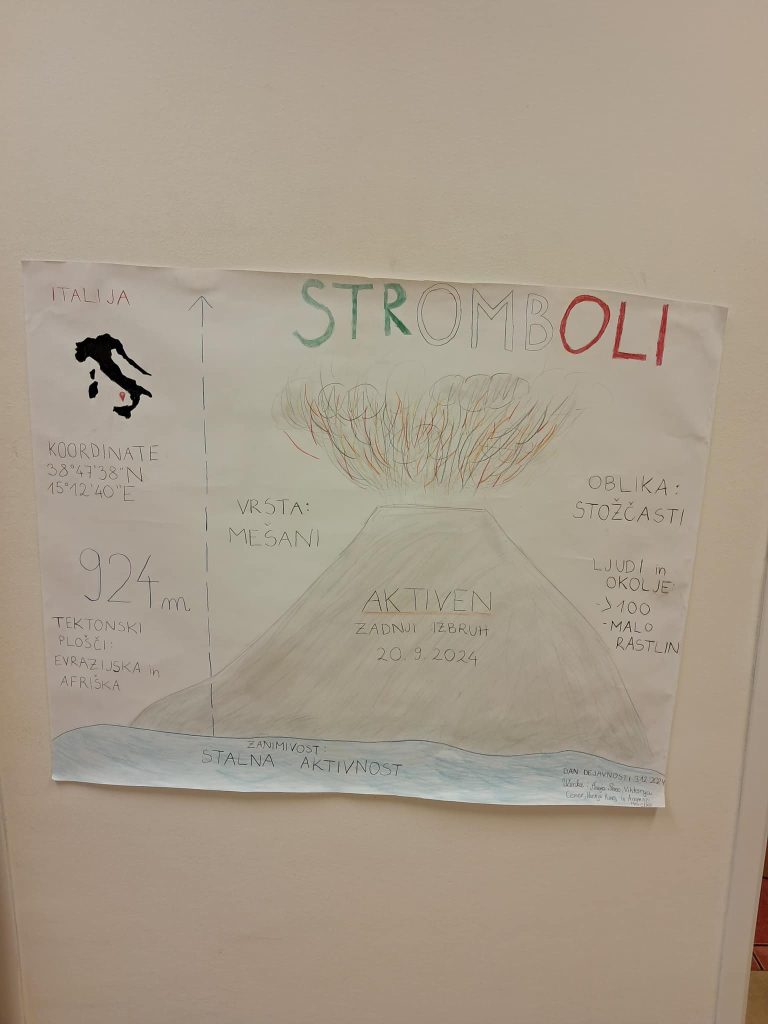 ITALIJA
STROMBOLI
KOORDINATE
38°47'38"N
15°12'40"E
924m
TEKTONSKI
PLOŠČI:
EVRAZIJSKA in
AFRIŠKA
VRSTA:
MEŠANI
AKTIVEN
ZADNJI IZBRUH
20.9.2024
OBLIKA:
STOŽČASTI
LJUDI in
OKOLJE
->100
-MALO
RASTLIN
ZANIMIVOST:
STALNA AKTIVNOST
DAN DEJAVNOSTI 3.12.2024